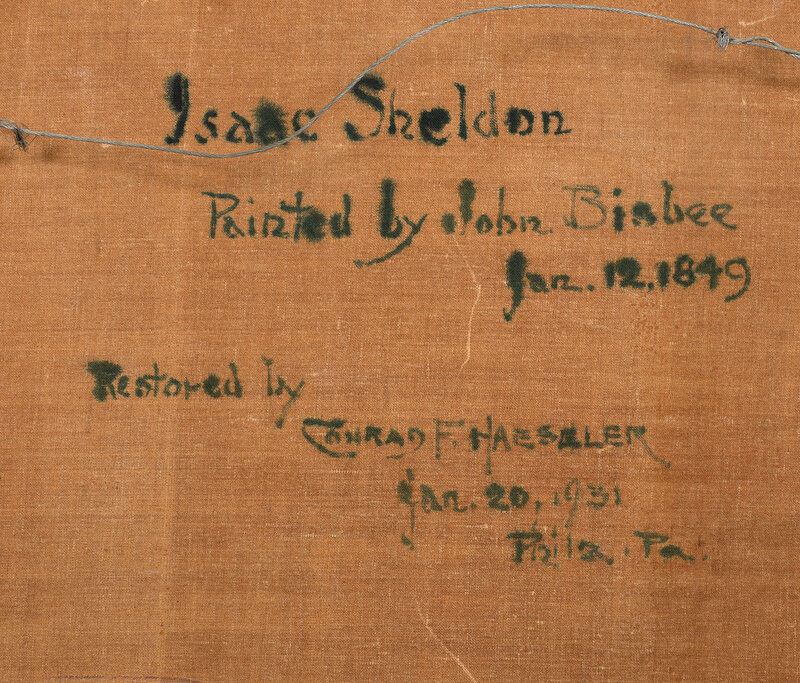 Isaac Sheldon
Painted by John Bisbee
Jan. 12, 1849
Restored by
CONRAD F. HAESELER
Jan. 20, 1931
Phila. Pa.